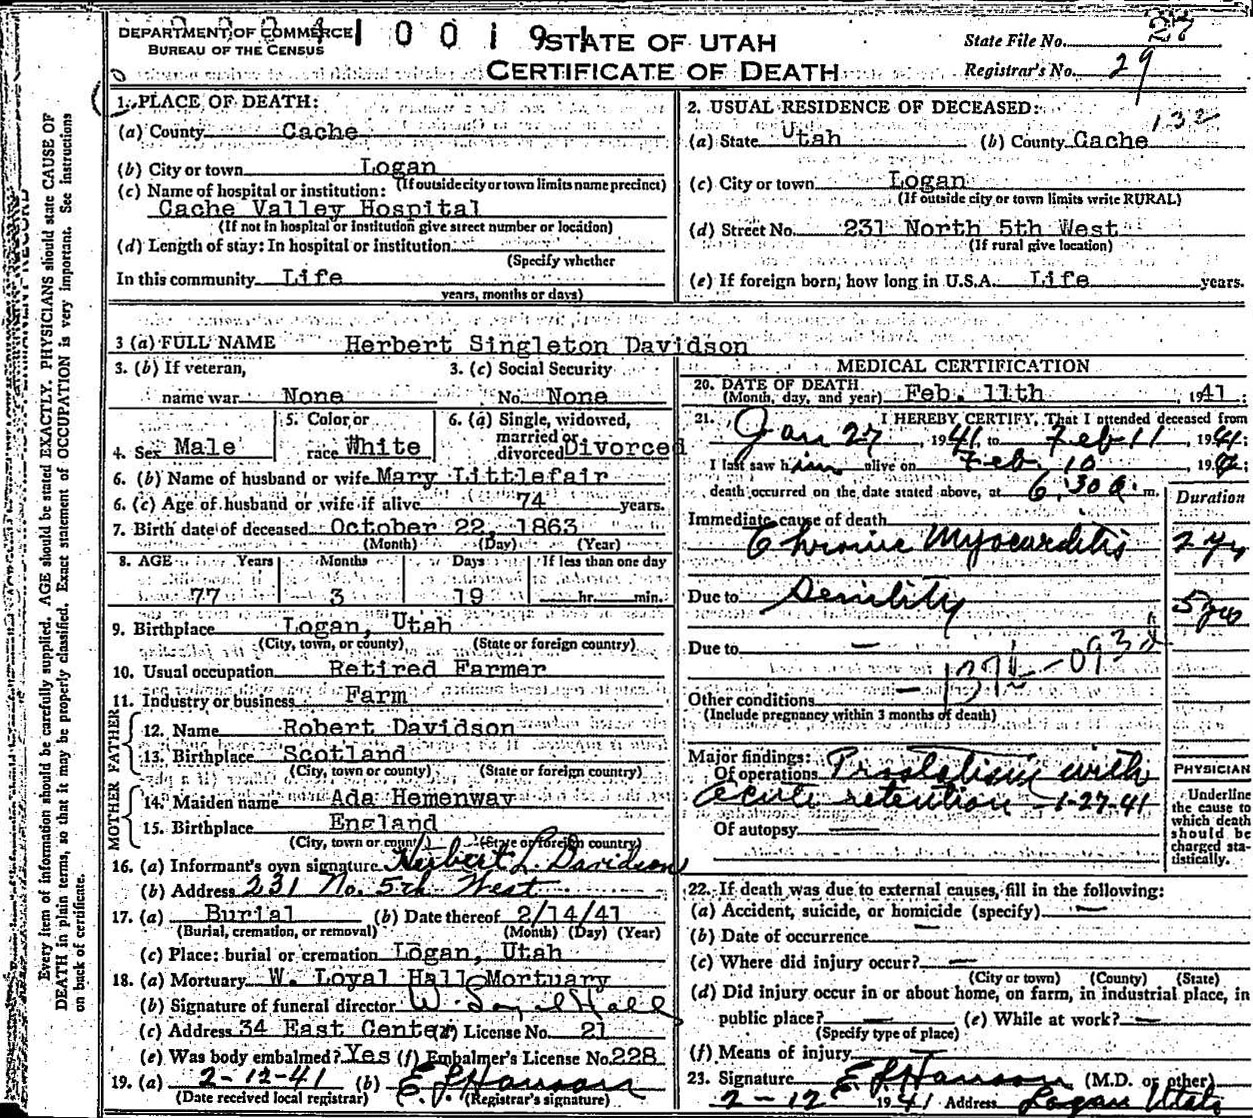 DEPARTMENT OF COMMERCE
BUREAU OF THE CENSUS
1 0 0 1 9 1
STATE OF UTAH
CERTIFICATE OF DEATH
State File No. 27
Registrar's No. 29
1. PLACE OF DEATH:
(a) County Cache
(b) City or town Logan
(If outside city or town limits name precinct)
(c) Name of hospital or institution:
Cache Valley Hospital
(If not in hospital or institution give street number or location)
(d) Length of stay: In hospital or institution
(Specify whether
In this community Life
years, months or days)
2. USUAL RESIDENCE OF DECEASED:
132
(a) State Utah (b) County Cache
(c) City or town Logan
(If outside city or town limits write RURAL)
(d) Street No. 231 North 5th West
(If rural give location)
(e) If foreign born, how long in U.S.A. Life years.
3 (a) FULL NAME Herbert Singleton Davidson
3. (b) If veteran, name war None
3. (c) Social Security No. None
4. Sex Male
5. Color or race White
6. (a) Single, widowed, married or divorced Divorced
6. (b) Name of husband or wife Mary Littlefair
6. (c) Age of husband or wife if alive 74 years.
7. Birth date of deceased October 22, 1863
(Month) (Day) (Year)
8. AGE Years Months Days If less than one day
77 3 19 hr. min.
9. Birthplace Logan, Utah
(City, town, or county) (State or foreign country)
10. Usual occupation Retired Farmer
11. Industry or business Farm
FATHER
12. Name Robert Davidson
13. Birthplace Scotland
(City, town or county) (State or foreign country)
MOTHER
14. Maiden name Ada Hemenway
15. Birthplace England
(City, town or county) (State or foreign country)
16. (a) Informant's own signature Herbert L. Davidson
(b) Address 231 No. 5th West
17. (a) Burial (b) Date thereof 2/14/41
(Burial, cremation, or removal) (Month) (Day) (Year)
(c) Place: burial or cremation Logan, Utah
18. (a) Mortuary W. Loyal Hall Mortuary
(b) Signature of funeral director W. Loyal Hall
(c) Address 34 East Center License No. 21
(e) Was body embalmed? Yes (f) Embalmer's License No. 228
19. (a) 2-12-41 (b) E L Hanson
(Date received local registrar) (Registrar's signature)
MEDICAL CERTIFICATION
20. DATE OF DEATH
(Month, day, and year) Feb. 11th, 1941
21. I HEREBY CERTIFY, That I attended deceased from
Jan 27, 1941 to Feb 11, 1941;
I last saw him alive on Feb 10
death occurred on the date stated above, at 6:30 a. m.
Duration
Immediate cause of death
Chronic Myocarditis 2 yrs
Due to Senility 5 yrs
Due to —
Other conditions
(Include pregnancy within 3 months of death)
Major findings:
Of operations Prostatism with
acute retention - 1-27-41
Of autopsy —
PHYSICIAN
Underline
the cause to
which death
should be
charged sta-
tistically.
22. If death was due to external causes, fill in the following:
(a) Accident, suicide, or homicide (specify) —
(b) Date of occurrence —
(c) Where did injury occur? —
(City or town) (County) (State)
(d) Did injury occur in or about home, on farm, in industrial place, in
public place? — (e) While at work? —
(Specify type of place)
(f) Means of injury —
23. Signature E L Hanson (M.D. or other)
2-12 1941 Address Logan Utah
Every item of information should be carefully supplied. AGE should be stated EXACTLY. PHYSICIANS should state CAUSE OF
DEATH in plain terms, so that it may be properly classified. Exact statement of OCCUPATION is very important. See instructions
on back of certificate.